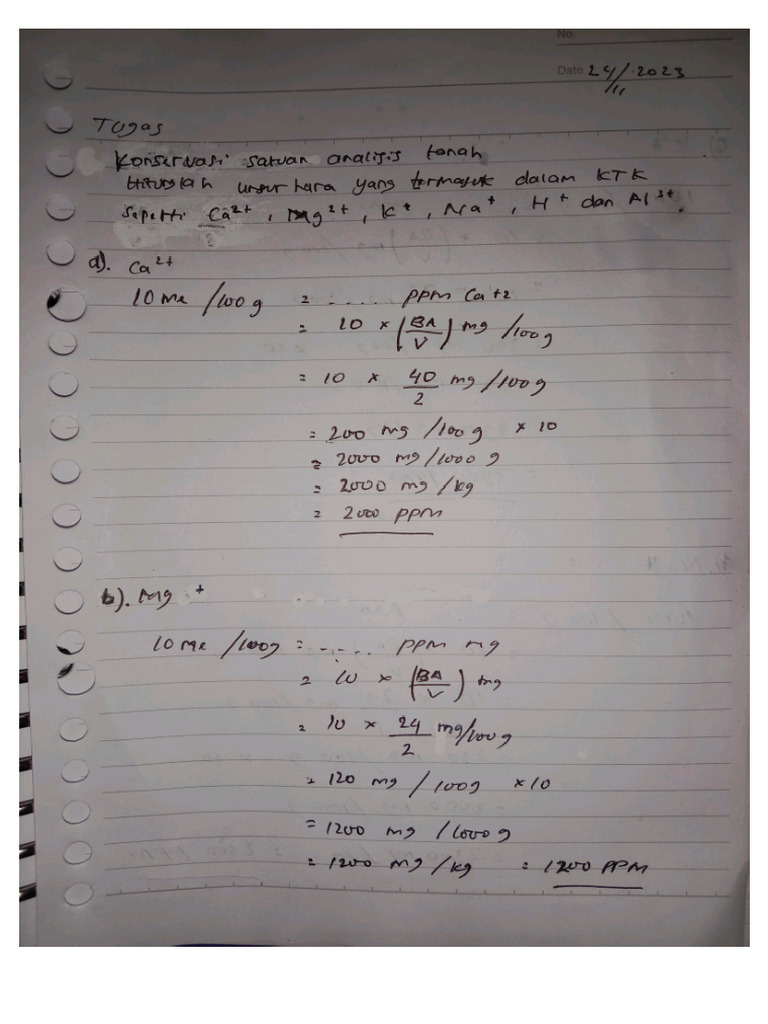 No.
Date 24/11 2023
Tugas
Konservasi satuan analisis tanah
Hitunglah unsur hara yang termasuk dalam KTK
Seperti Ca²⁺, Mg²⁺, K⁺, Na⁺, H⁺ dan Al³⁺.
a). Ca²⁺
10 me /100 g = ...... ppm Ca+2
= 10 × (BA/V) mg /100 g
= 10 × 40/2 mg /100 g
= 200 mg /100 g × 10
= 2000 mg /1000 g
= 2000 mg /kg
= 2000 ppm
b). Mg ⁺
10 me /100g = ...... ppm mg
= 10 × (BA/V) mg
= 10 × 24/2 mg/100 g
= 120 mg / 100g × 10
= 1200 mg /1000g
= 1200 mg /kg = 1200 PPM